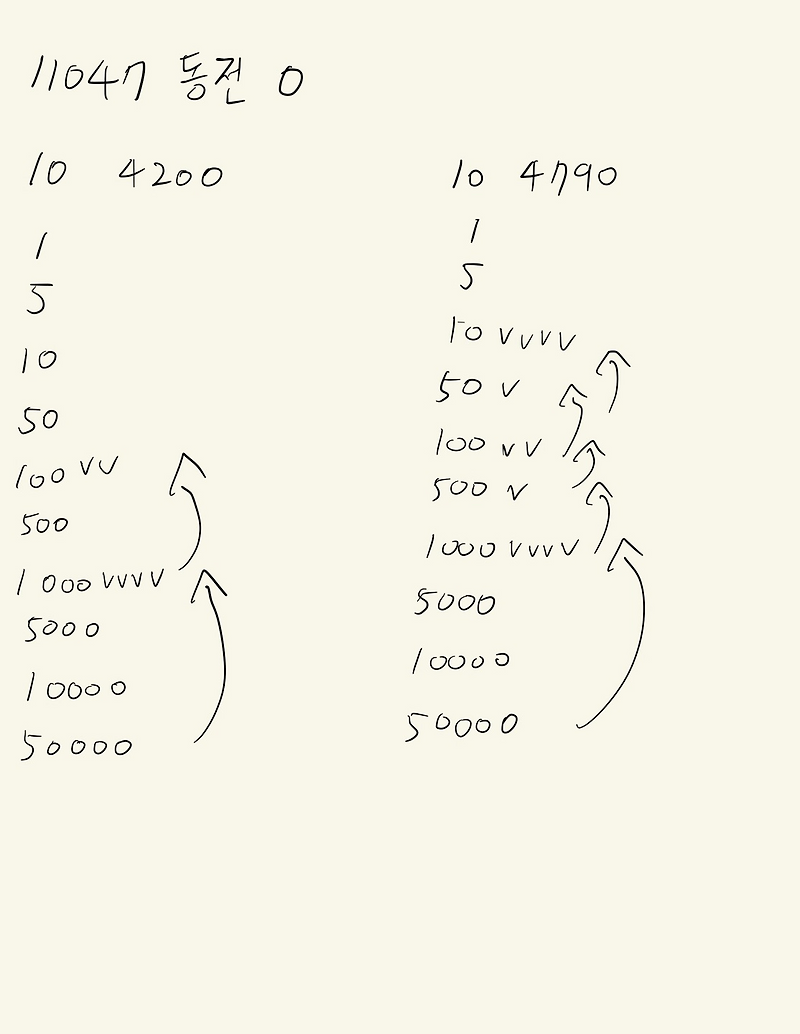 11047 동전 0
10 4200
1
5
10
50
100 VV
500
1000 VVVV
5000
10000
50000
10 4790
1
5
10 VVVV
50 V
100 VV
500 V
1000 VVVV
5000
10000
50000